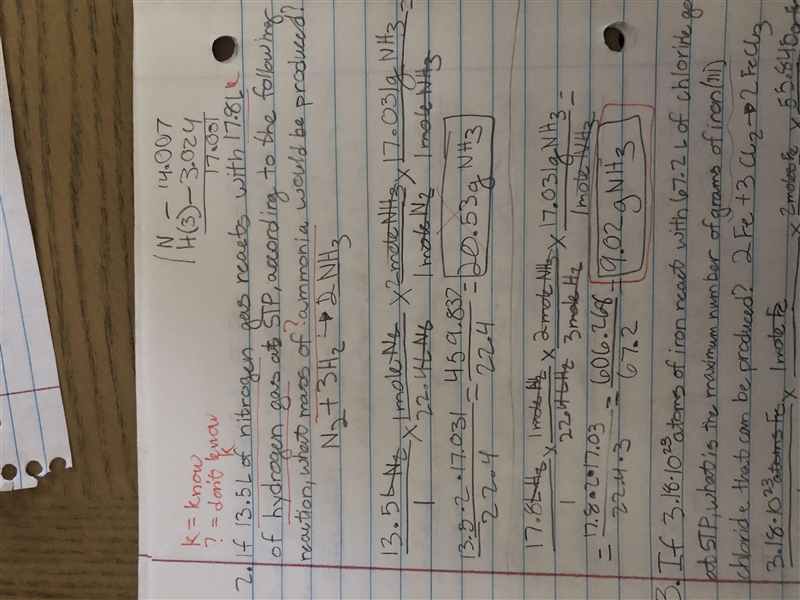 N - 14.007
H(3) - 3.024
17.031
k = know
? = don't know
k
k
2. If 13.5L of nitrogen gas reacts with 17.8L
of hydrogen gas at STP, according to the following
?
reaction, what mass of ammonia would be produced?
N2 + 3H2 → 2NH3
13.5L N2 / 1 × 1 mole N2 / 22.4L N2 × 2 mole NH3 / 1 mole N2 × 17.031g NH3 / 1 mole NH3 =
13.5·2·17.031 / 22.4 = 459.837 / 22.4 = 20.53g NH3
17.8L H2 / 1 × 1 mole H2 / 22.4L H2 × 2 mole NH3 / 3 mole H2 × 17.031g NH3 / 1 mole NH3 =
= 17.8·2·17.03 / 22.4·3 = 606.268 / 67.2 = 9.02 g NH3
3. If 3.18·10^23 atoms of iron reacts with 67.2L of chlorine
at STP, what is the maximum number of grams of iron(III)
chloride that can be produced? 2Fe + 3Cl2 → 2FeCl3
3.18·10^23 atoms Fe × 1 mole Fe × 2 moles Fe × 55.845g